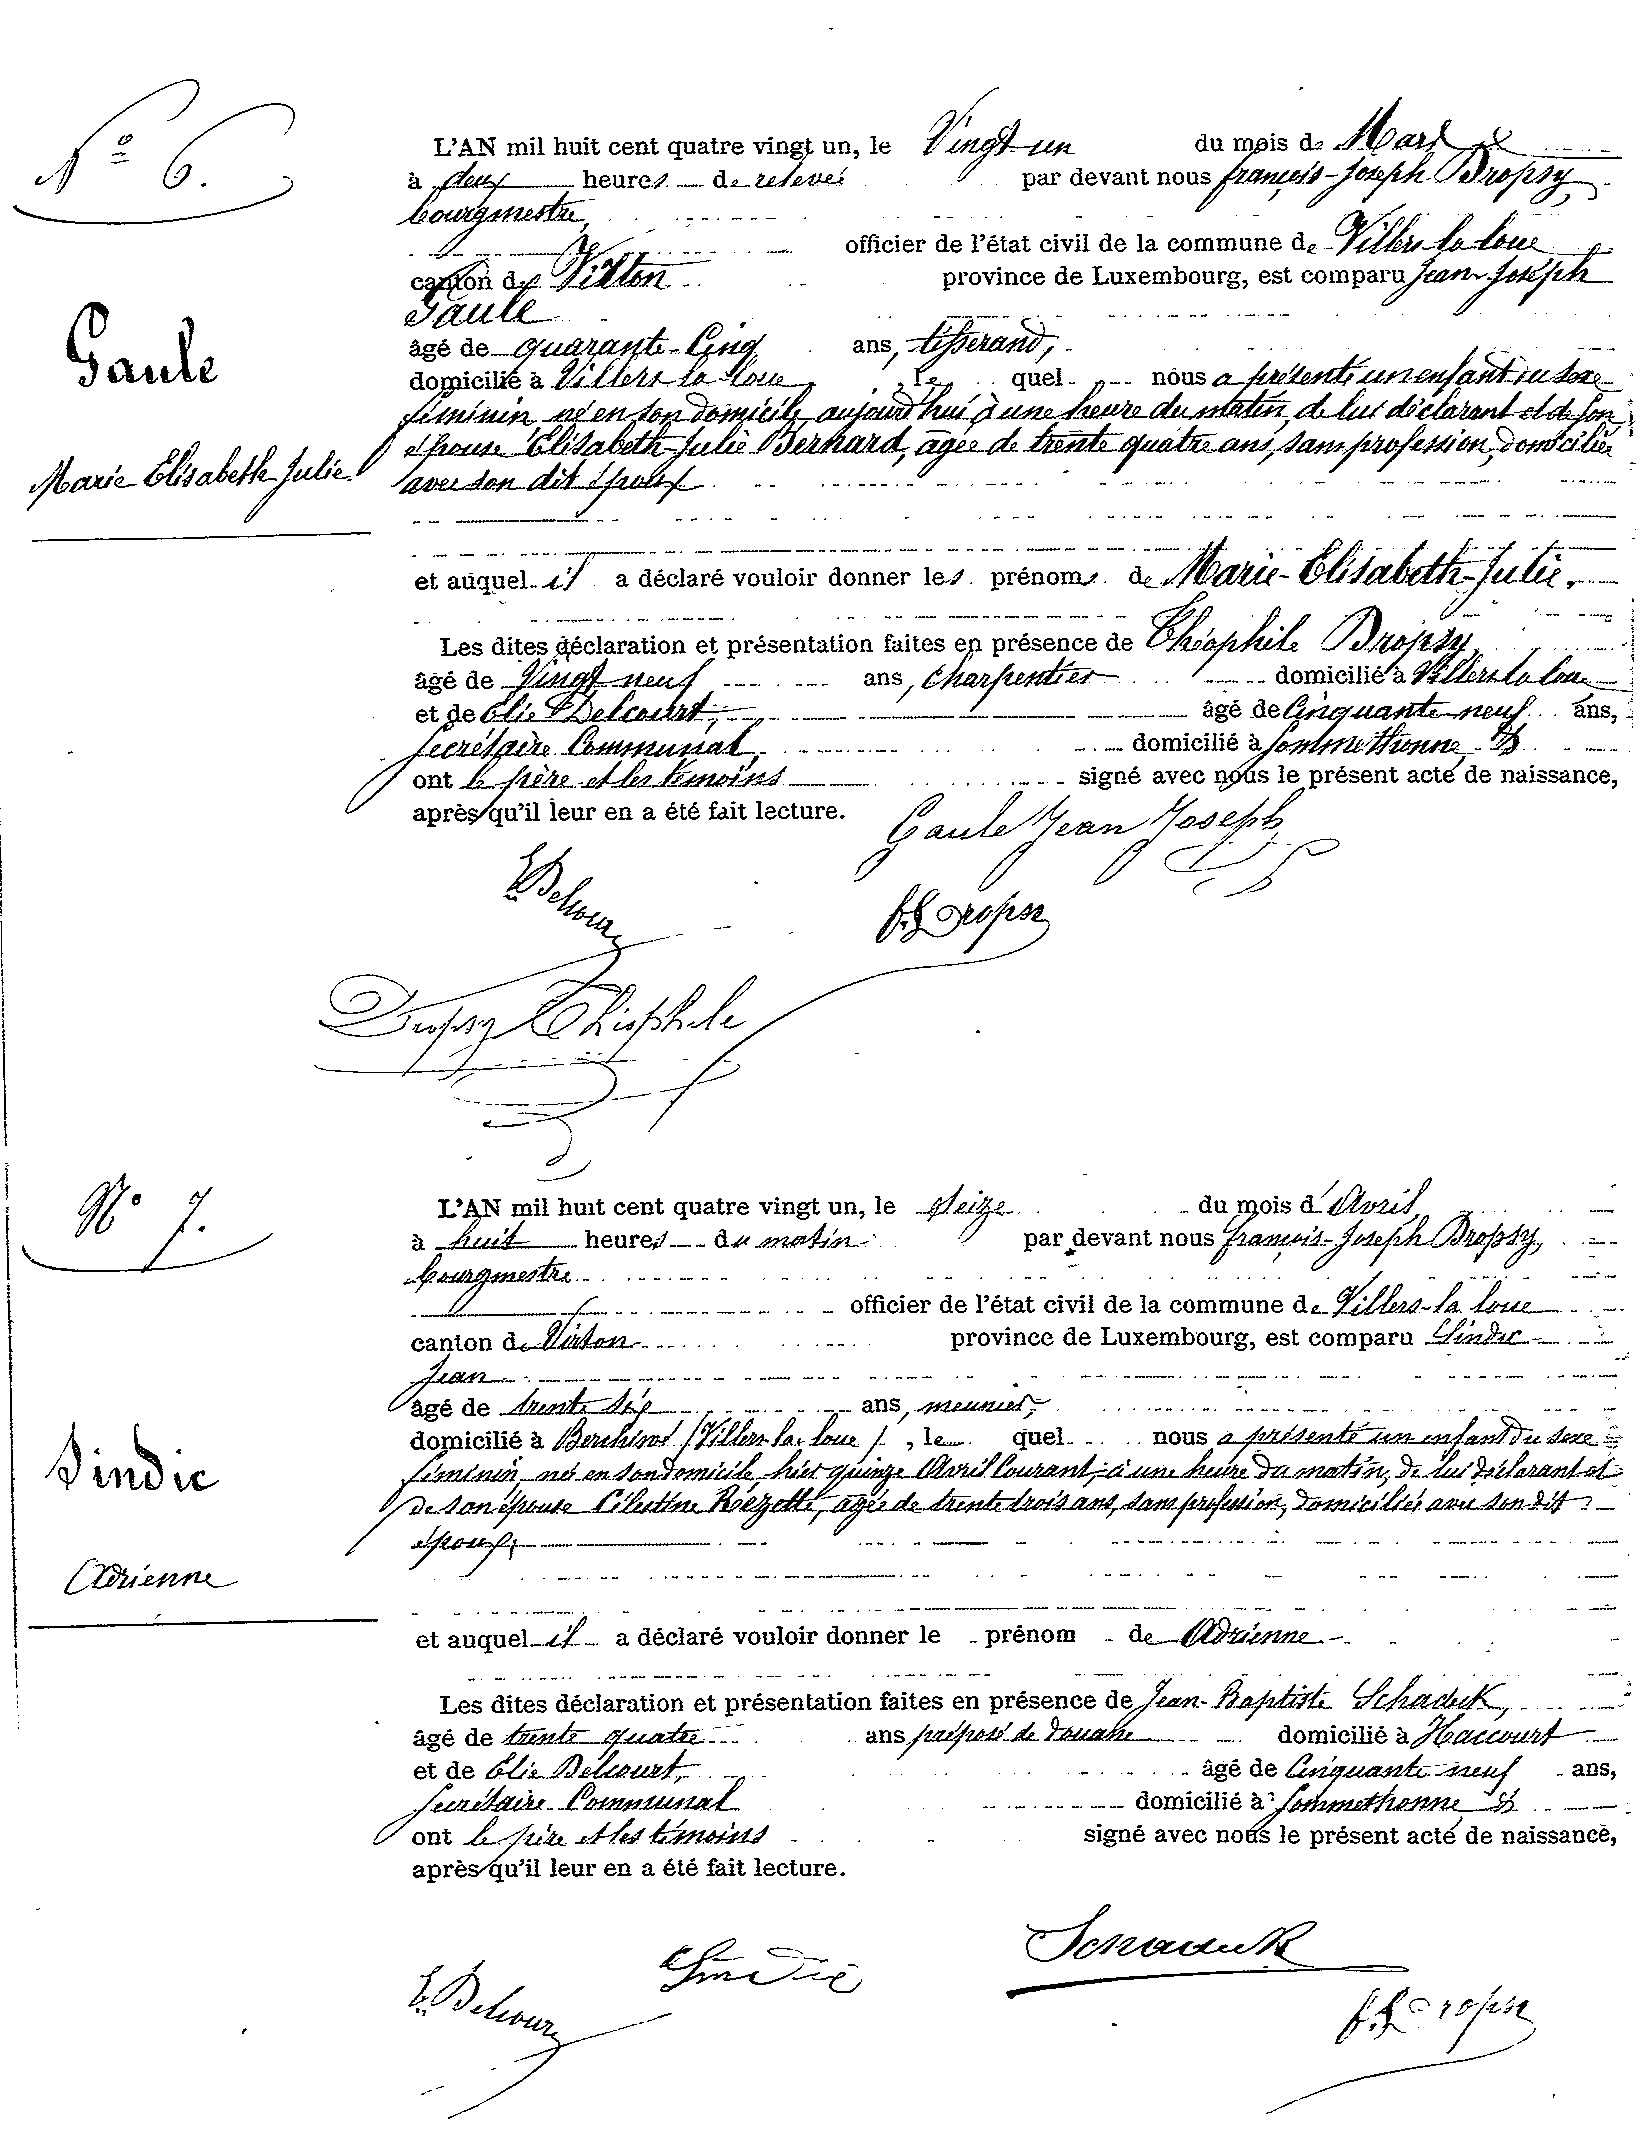 N° 6.
L'AN mil huit cent quatre vingt un, le Vingt un du mois de Mars
à deux heures de relevée par devant nous françois-Joseph Dropsy
bourgmestre,
officier de l'état civil de la commune de Villers la loue
canton de Virton province de Luxembourg, est comparu Jean Joseph
Gaule
âgé de quarante-Cinq ans, tisserand,
domicilié à Villers la loue, le quel nous a présenté un enfant du sexe
féminin né en son domicile, aujourd'hui à une heure du matin, de lui déclarant et de son
épouse Elisabeth-Julie Bernard, agée de trente quatre ans, sans profession, domiciliée
avec son dit époux
et auquel il a déclaré vouloir donner les prénoms de Marie-Elisabeth-Julie.
Gaule
Marie Elisabeth Julie
Les dites déclaration et présentation faites en présence de Théophile Dropsy
âgé de Vingt neuf ans, charpentier domicilié à Villers la loue
et de Elie Delcourt, âgé de Cinquante neuf ans,
Secrétaire Communal, domicilié à Sommethonne &
ont le père et les témoins signé avec nous le présent acte de naissance,
après qu'il leur en a été fait lecture.
Gaule Jean Joseph
E. Delcour
f. J. Dropsy
Dropsy Théophile
N° 7.
L'AN mil huit cent quatre vingt un, le Seize du mois d'Avril
à huit heures du matin par devant nous françois-Joseph Dropsy,
bourgmestre
officier de l'état civil de la commune de Villers-la loue
canton de Virton province de Luxembourg, est comparu Sindic
Jean
âgé de trente six ans, meunier,
domicilié à Berchiwé (Villers-la-loue), le quel nous a présenté un enfant du sexe
féminin, né en son domicile, hier quinze Avril Courant, à une heure du matin, de lui déclarant et
de son épouse Célestine Rézette, agée de trente trois ans, sans profession, domiciliée avec son dit
époux;
Sindic
Adrienne
et auquel il a déclaré vouloir donner le prénom de Adrienne
Les dites déclaration et présentation faites en présence de Jean-Baptiste Schadeck,
âgé de trente quatre ans préposé de douane domicilié à Haccourt
et de Elie Delcourt, âgé de Cinquante neuf ans,
Secrétaire Communal domicilié à Sommethonne &
ont le père et les témoins signé avec nous le présent acte de naissance,
après qu'il leur en a été fait lecture.
Schadeck
Sindic
E. Delcour
f. J. Dropsy